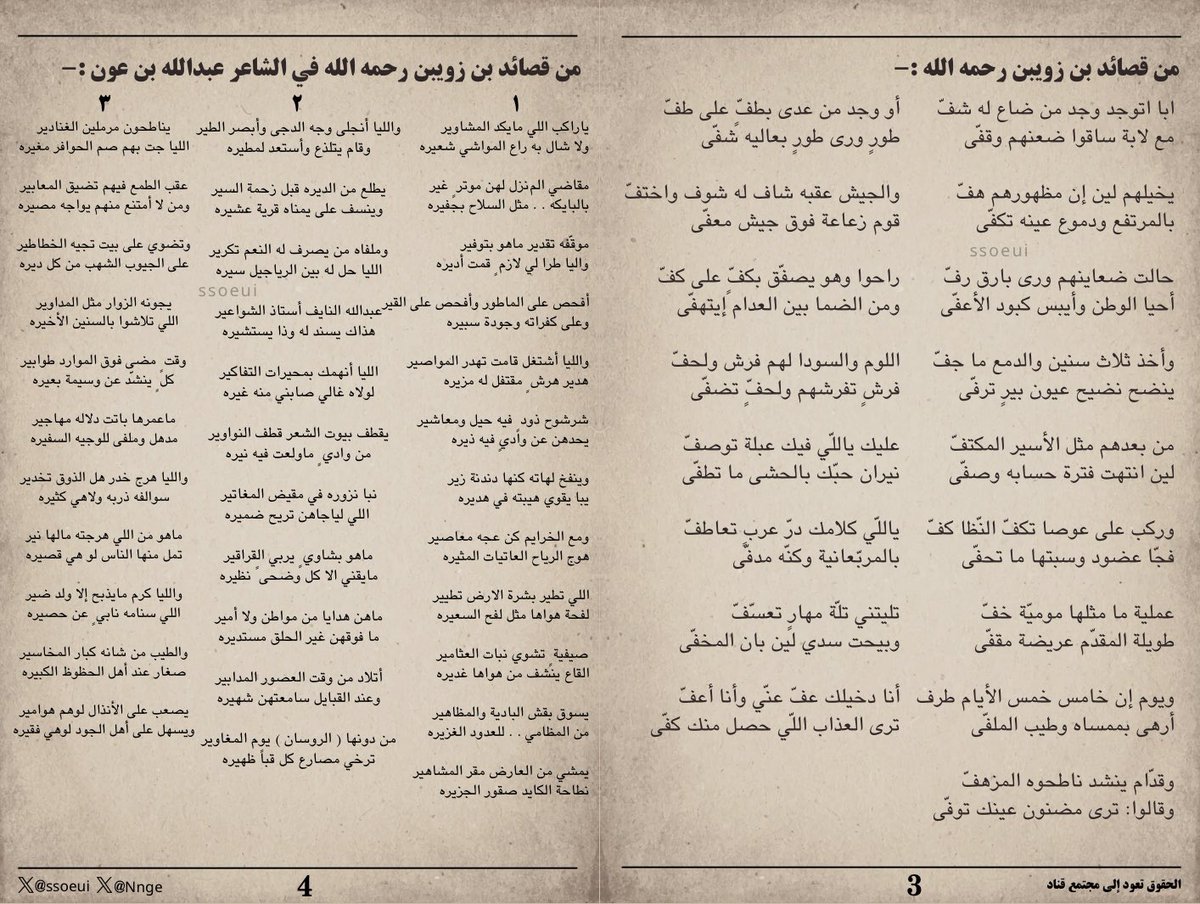 من قصائد بن زويبن رحمه الله :-
ابا اتوجد وجد من ضاع له شفّ
مع لابة ساقوا ضعنهم وقفّى
يخيلهم لين إن مظهورهم هفّ
بالمرتفع ودموع عينه تكفّى
ssoeui
حالت ضعاينهم ورى بارق رفّ
أحيا الوطن وأيبس كبود الأعفّى
وأخذ ثلاث سنين والدمع ما جفّ
ينضح نضيح عيون بيرٍ ترفّى
من بعدهم مثل الأسير المكتفّ
لين انتهت فترة حسابه وصفّى
وركب على عوصا تكفّ النّظا كفّ
فجّا عضود وسبتها ما تحفّى
عملية ما مثلها موميّة خفّ
طويلة المقدّم عريضة مقفّى
ويوم إن خامس خمس الأيام طرف
أرهى بممساه وطيب الملفّى
وقدّام ينشد ناطحوه المزهفّ
وقالوا: ترى مضنون عينك توفّى
أو وجد من عدى بطفٍّ على طفّ
طورٍ ورى طورٍ بعاليه شفّى
والجيش عقبه شاف له شوف واختفّ
قوم زعاعة فوق جيش معفّى
راحوا وهو يصفّق بكفٍّ على كفّ
ومن الضما بين العدام إيتهفّى
اللوم والسودا لهم فرش ولحفّ
فرشٍ تفرشهم ولحفٍّ تضفّى
عليك ياللّي فيك عبلة توصفّ
نيران حبّك بالحشى ما تطفّى
ياللّي كلامك درّ عربٍ تعاطفّ
بالمربّعانية وكنّه مدفّى
تليتني تلّة مهارٍ تعسّفّ
وبيحت سدي لين بان المخفّى
أنا دخيلك عفّ عنّي وأنا أعفّ
ترى العذاب اللّي حصل منك كفّى
الحقوق تعود إلى مجتمع قناد
3
من قصائد بن زويبن رحمه الله في الشاعر عبدالله بن عون :-
١
ياراكب اللي مايكد المشاوير
ولا شال به راع المواشي شعيره
مقاضي المنزل لهن موترٍ غير
بالبايكه . . مثل السلاح بجفيره
موقّفه تقدير ماهو بتوفير
واليا طرا لي لازمٍ قمت أديره
أفحص على الماطور وأفحص على القير
وعلى كفراته وجودة سبيره
واليا أشتغل قامت تهدر المواصير
هدير هرشٍ مقتفل له مزيره
شرشوح ذودٍ فيه حيل ومعاشير
يحدهن عن واديٍ فيه ذيره
وينفخ لهاته كنها دندنة زير
يبا يقوي هيبته في هديره
ومع الخرايم كن عجه معاصير
هوج الرياح العاتيات المثيره
اللي تطير بشرة الارض تطيير
لفحة هواها مثل لفح السعيره
صيفيةٍ تشوي نبات العثامير
القاع ينشف من هواها غديره
يسوق بقش البادية والمظاهير
من المظامي . . للعدود الغزيره
يمشي من العارض مقر المشاهير
نطاحة الكايد صقور الجزيره
٢
واليا أنجلى وجه الدجى وأبصر الطير
وقام يتلذع وأستعد لمطيره
يطلع من الديره قبل زحمة السير
وينسف على يمناه قرية عشيره
وملفاه من يصرف له النعم تكرير
الليا حل له بين الرياجيل سيره
ssoeui
عبدالله النايف أستاذ الشواعير
هذاك يسند له وذا يستشيره
الليا أنهمك بمحيرات التفاكير
لولاه غالي صابني منه غيره
يقطف بيوت الشعر قطف النواوير
من واديٍ ماولعت فيه نيره
نبا نزوره في مقيض المغاتير
اللي لياجاهن تريح ضميره
ماهو بشاويٍ يربي القراقير
مايقني الا كل وضحىً نظيره
ماهن هدايا من مواطن ولا أمير
ما فوقهن غير الحلق مستديره
أتلاد من وقت العصور المدابير
وعند القبايل سامعتهن شهيره
من دونها ( الروسان ) يوم المغاوير
ترخي مصارع كل قباً ظهيره
٣
يناطحون مرملين الغنادير
الليا جت بهم صم الحوافر مغيره
عقب الطمع فيهم تضيق المعابير
ومن لا أمتنع منهم يواجه مصيره
وتضوي على بيت تجيه الخطاطير
على الجيوب الشهب من كل ديره
يجونه الزوار مثل المداوير
اللي تلاشوا بالسنين الأخيره
وقتٍ مضى فوق الموارد طوابير
كلٍ ينشد عن وسيمة بعيره
ماعمرها باتت دلاله مهاجير
مدهل وملفى للوجيه السفيره
واليا هرج خدر هل الذوق تخدير
سوالفه ذربه ولاهي كثيره
ماهو من اللي هرجته مالها نير
تمل منها الناس لو هي قصيره
واليا كرم مايذبح إلا ولد ضير
اللي سنامه نابيٍ عن حصيره
والطيب من شانه كبار المخاسير
صغار عند أهل الحظوظ الكبيره
يصعب على الأنذال لوهم هوامير
ويسهل على أهل الجود لوهي فقيره
@ssoeui @Nnge
4